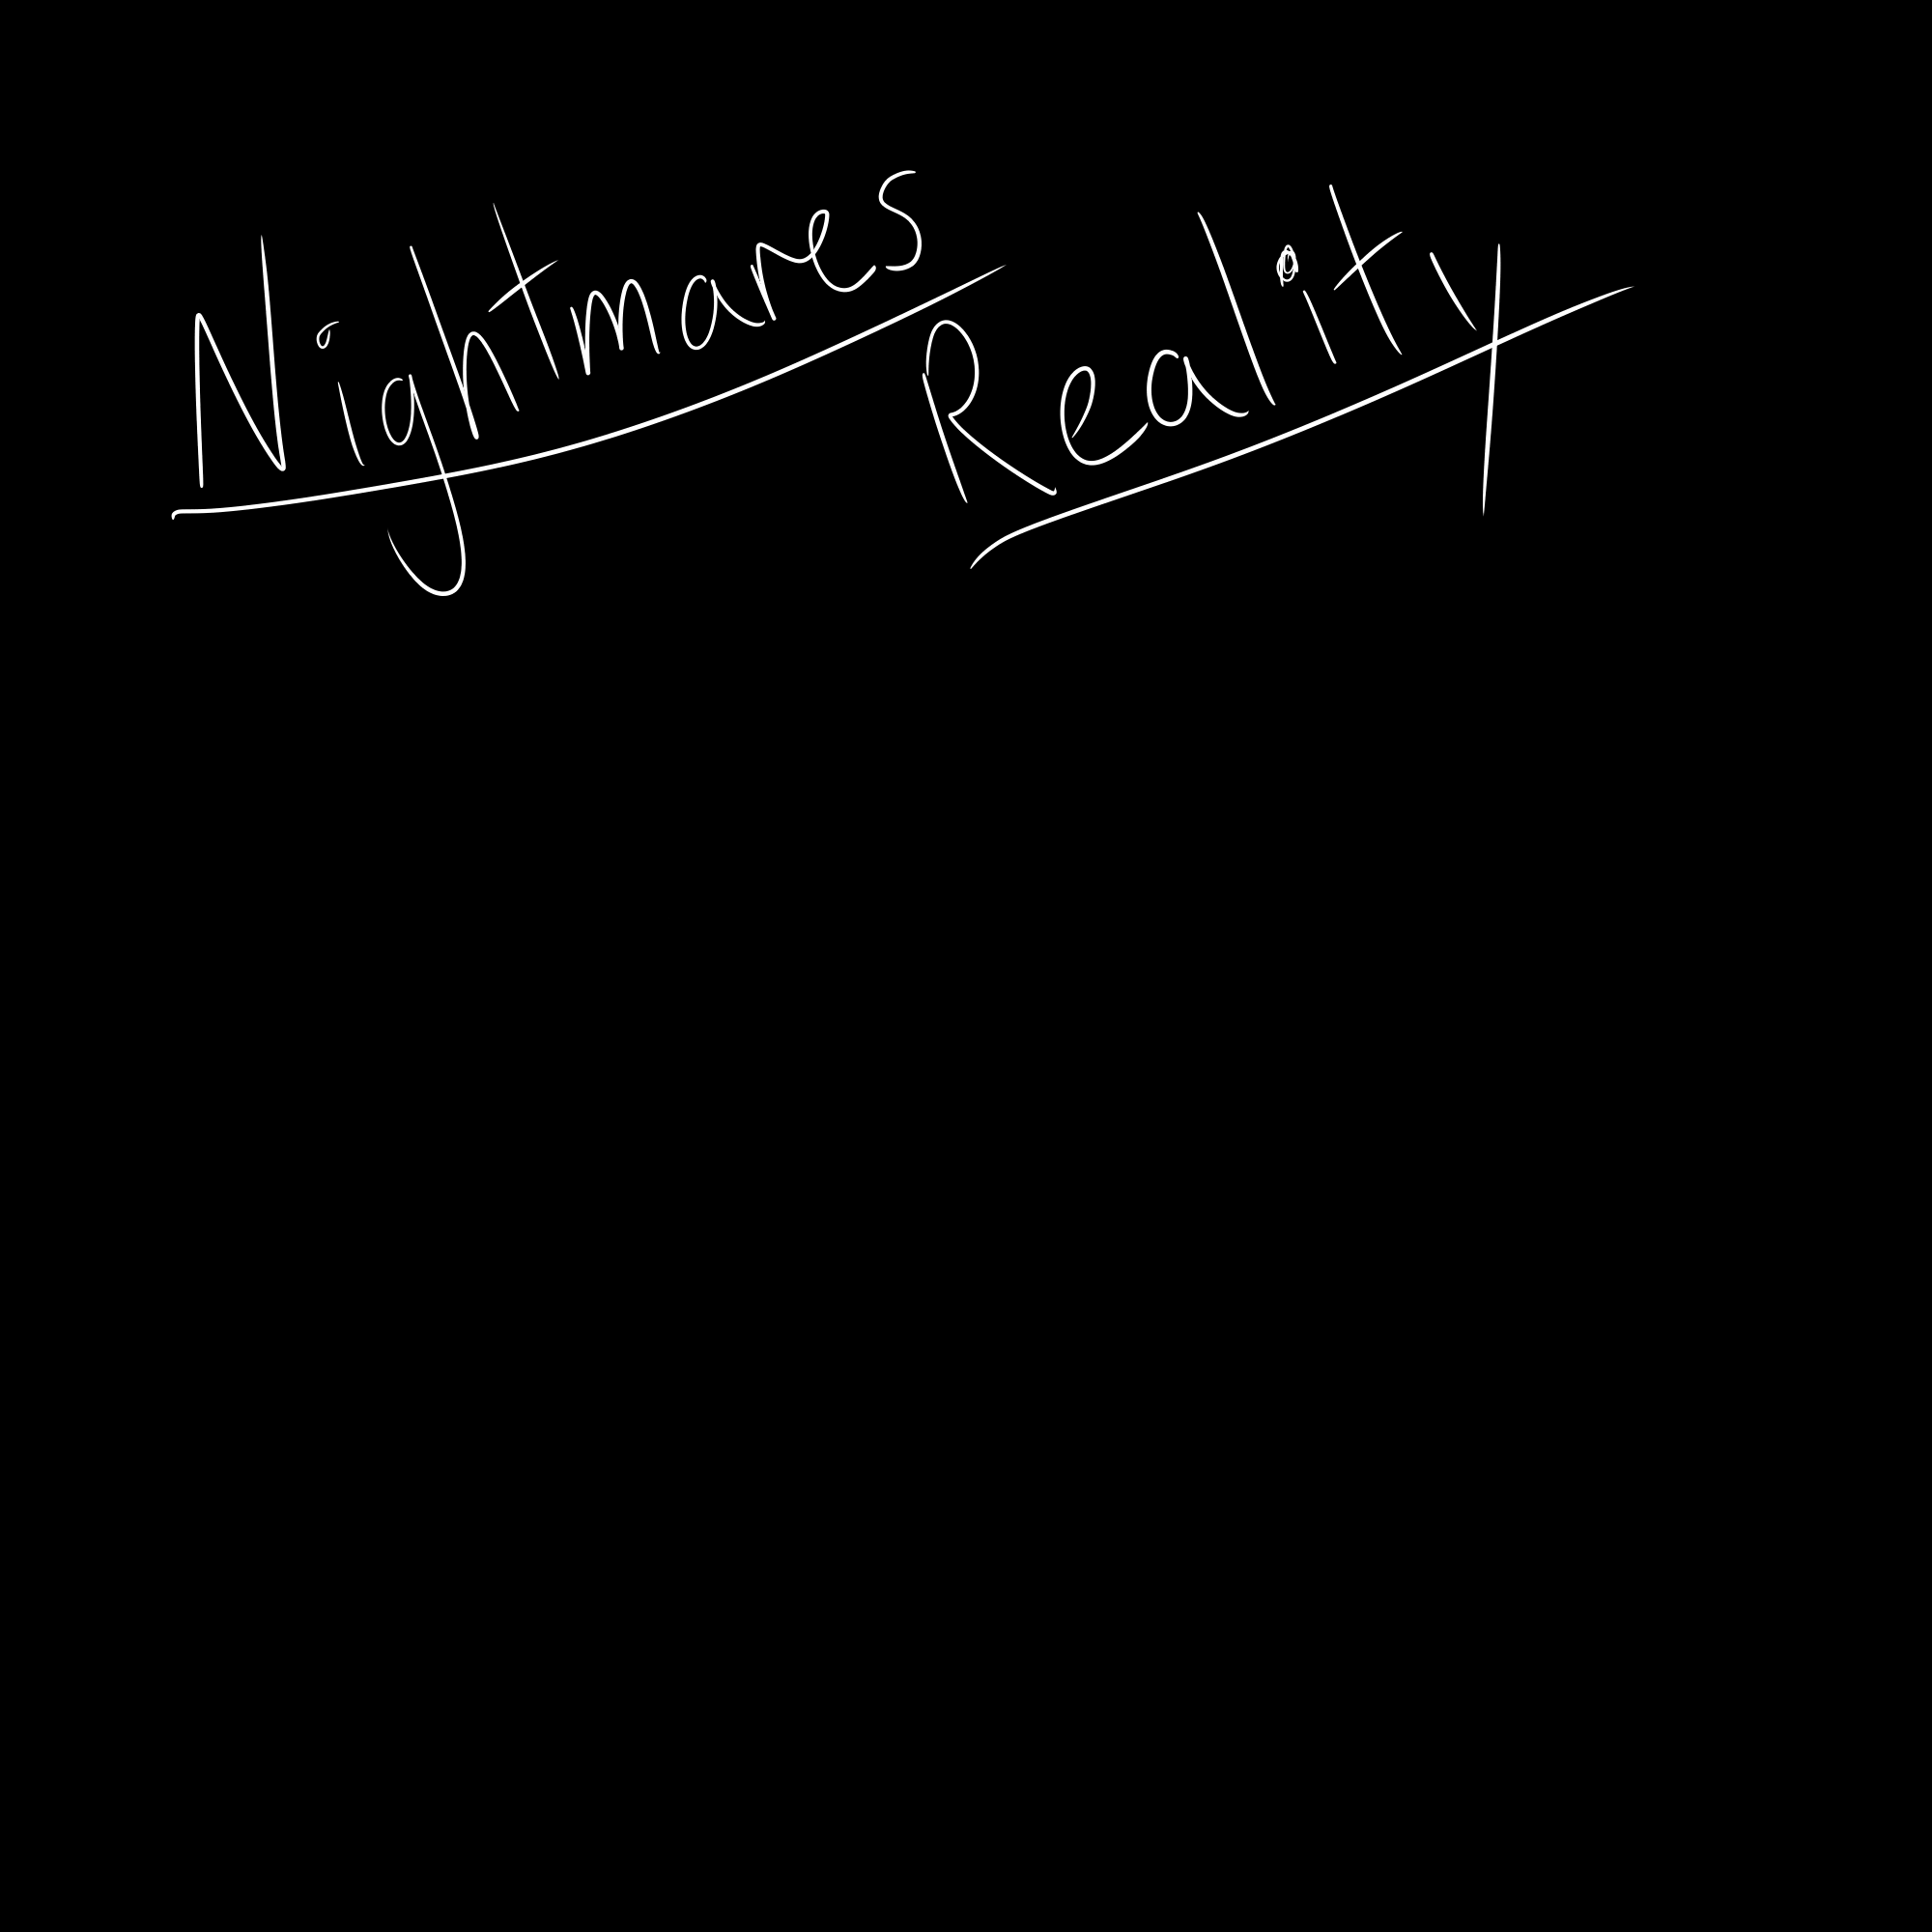 Nightmares Reality